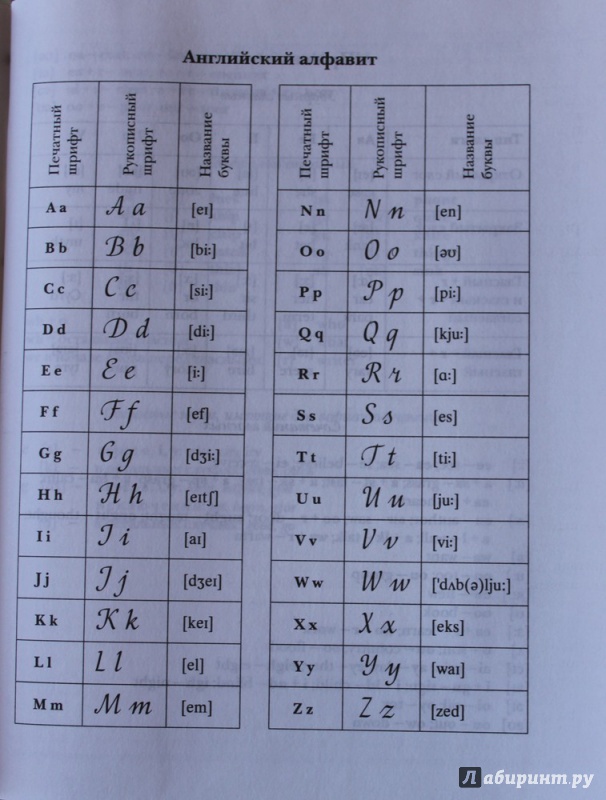 Английский алфавит
Печатный шрифт Рукописный шрифт Название буквы
A a A a [eɪ]
B b B b [biː]
C c C c [siː]
D d D d [diː]
E e E e [iː]
F f F f [ef]
G g G g [dʒiː]
H h H h [eɪtʃ]
I i I i [aɪ]
J j J j [dʒeɪ]
K k K k [keɪ]
L l L l [el]
M m M m [em]
Печатный шрифт Рукописный шрифт Название буквы
N n N n [en]
O o O o [əʊ]
P p P p [piː]
Q q Q q [kjuː]
R r R r [ɑː]
S s S s [es]
T t T t [tiː]
U u U u [juː]
V v V v [viː]
W w W w ['dʌb(ə)ljuː]
X x X x [eks]
Y y Y y [waɪ]
Z z Z z [zed]
Лабиринт.ру